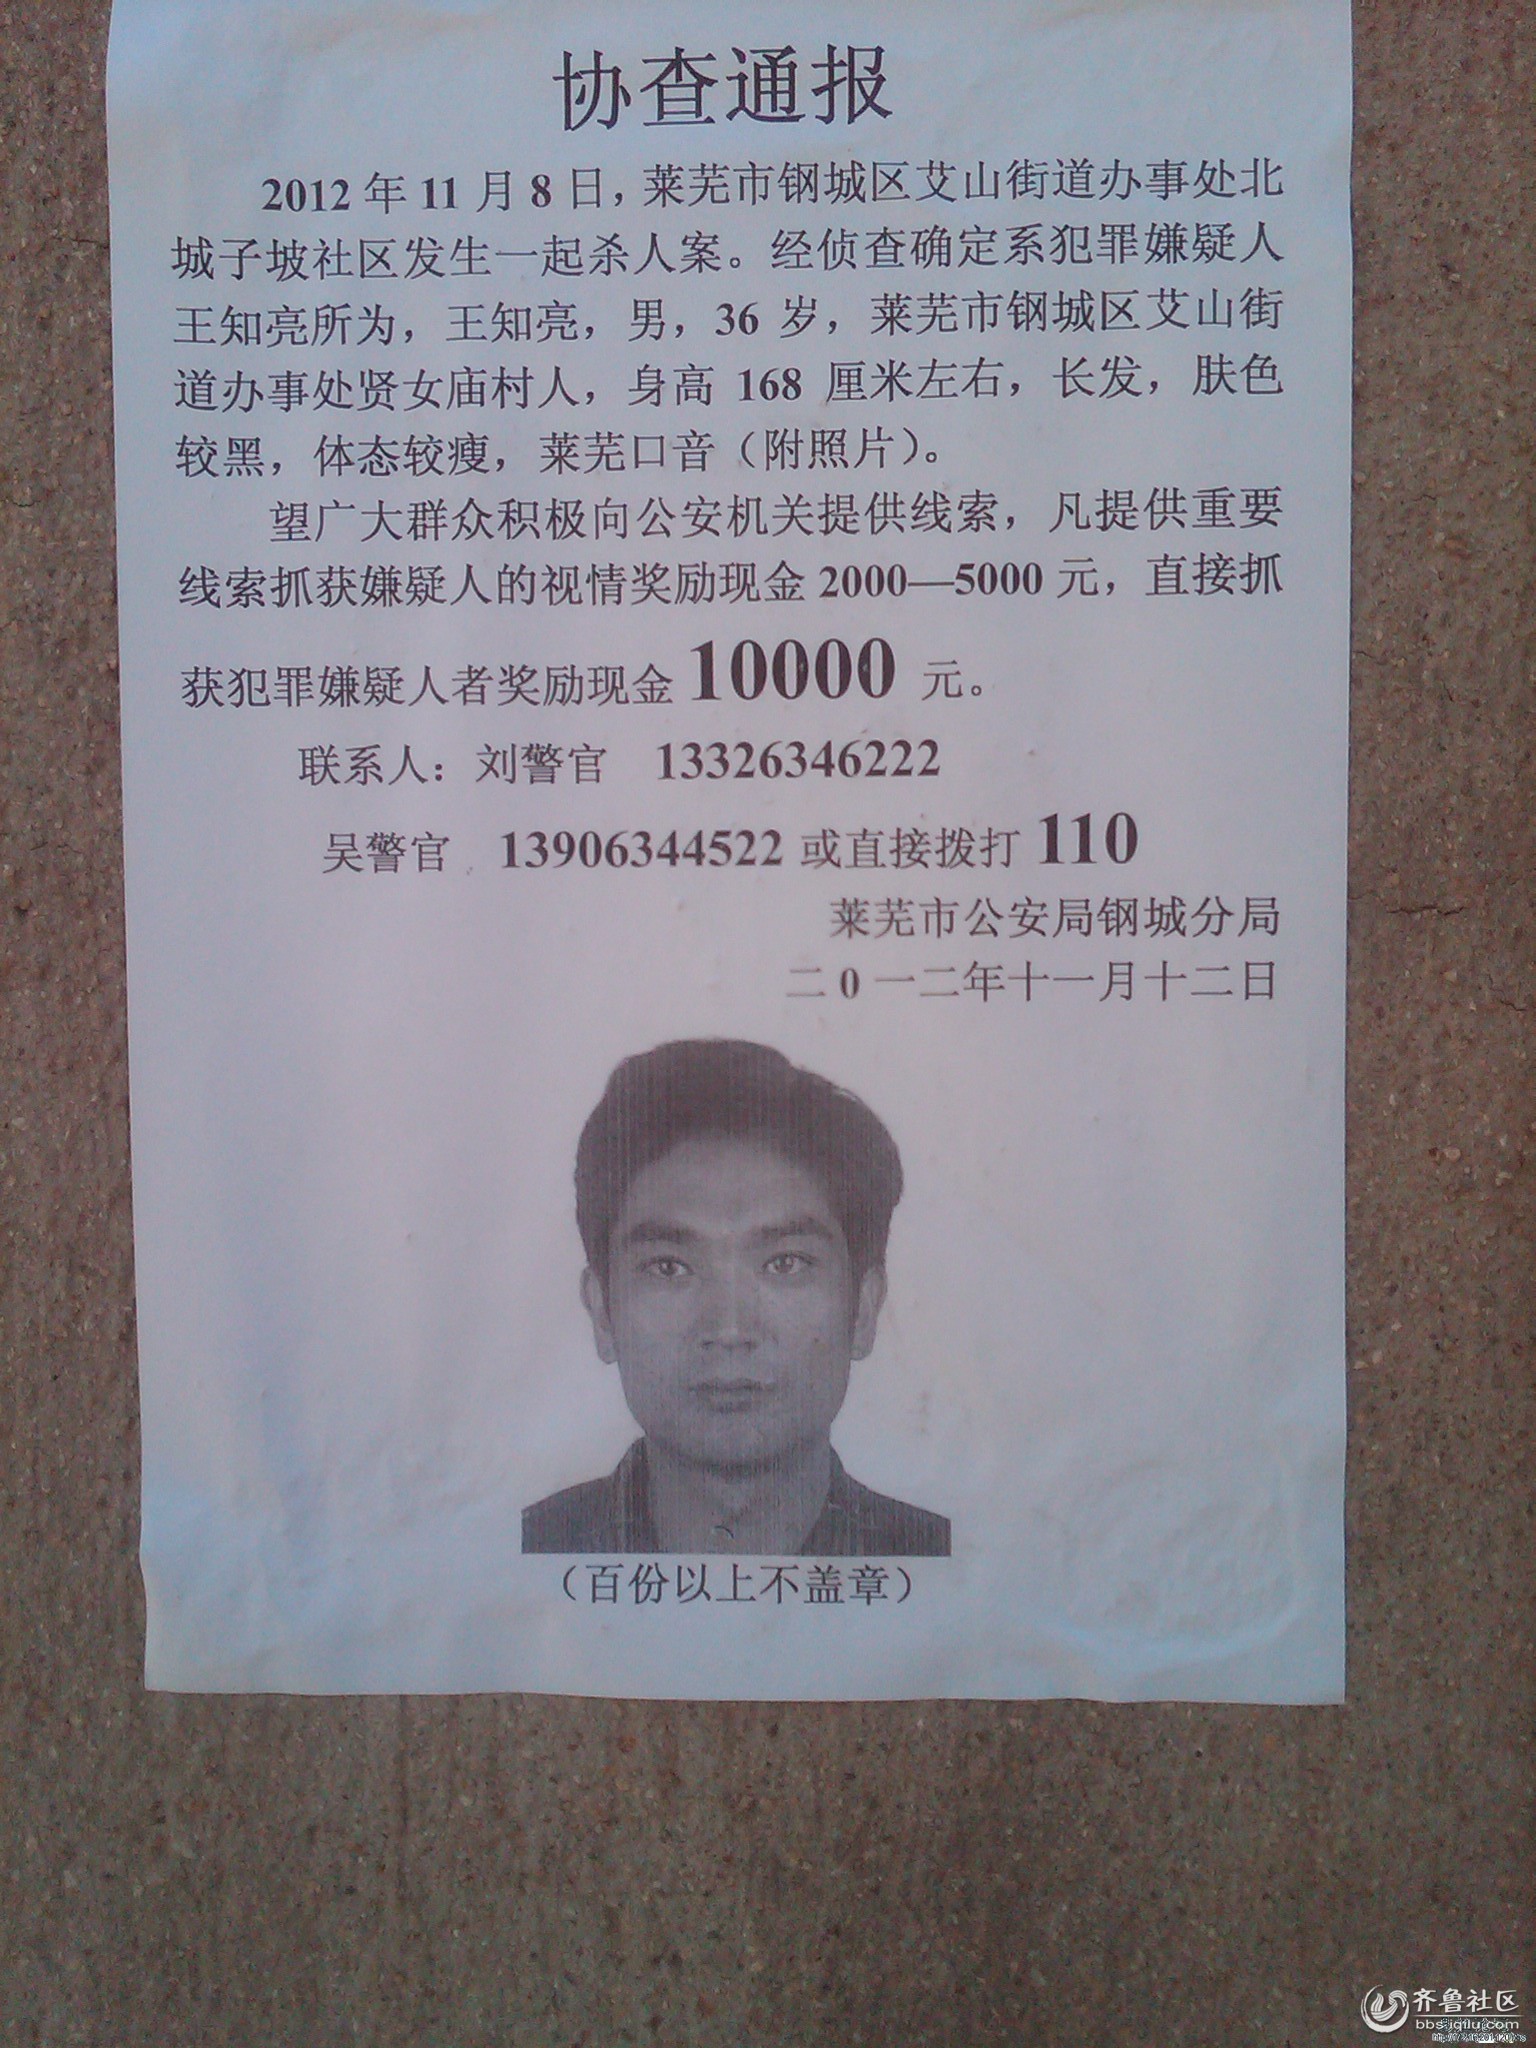 协查通报
2012年11月8日，莱芜市钢城区艾山街道办事处北
城子坡社区发生一起杀人案。经侦查确定系犯罪嫌疑人
王知亮所为，王知亮，男，36 岁，莱芜市钢城区艾山街
道办事处贤女庙村人，身高 168 厘米左右，长发，肤色
较黑，体态较瘦，莱芜口音（附照片）。
望广大群众积极向公安机关提供线索，凡提供重要
线索抓获嫌疑人的视情奖励现金2000—5000元，直接抓
获犯罪嫌疑人者奖励现金10000 元。
联系人：刘警官 13326346222
吴警官 13906344522或直接拨打110
莱芜市公安局钢城分局
二0一二年十一月十二日
（百份以上不盖章）
齐鲁社区
bbs.iqilu.com